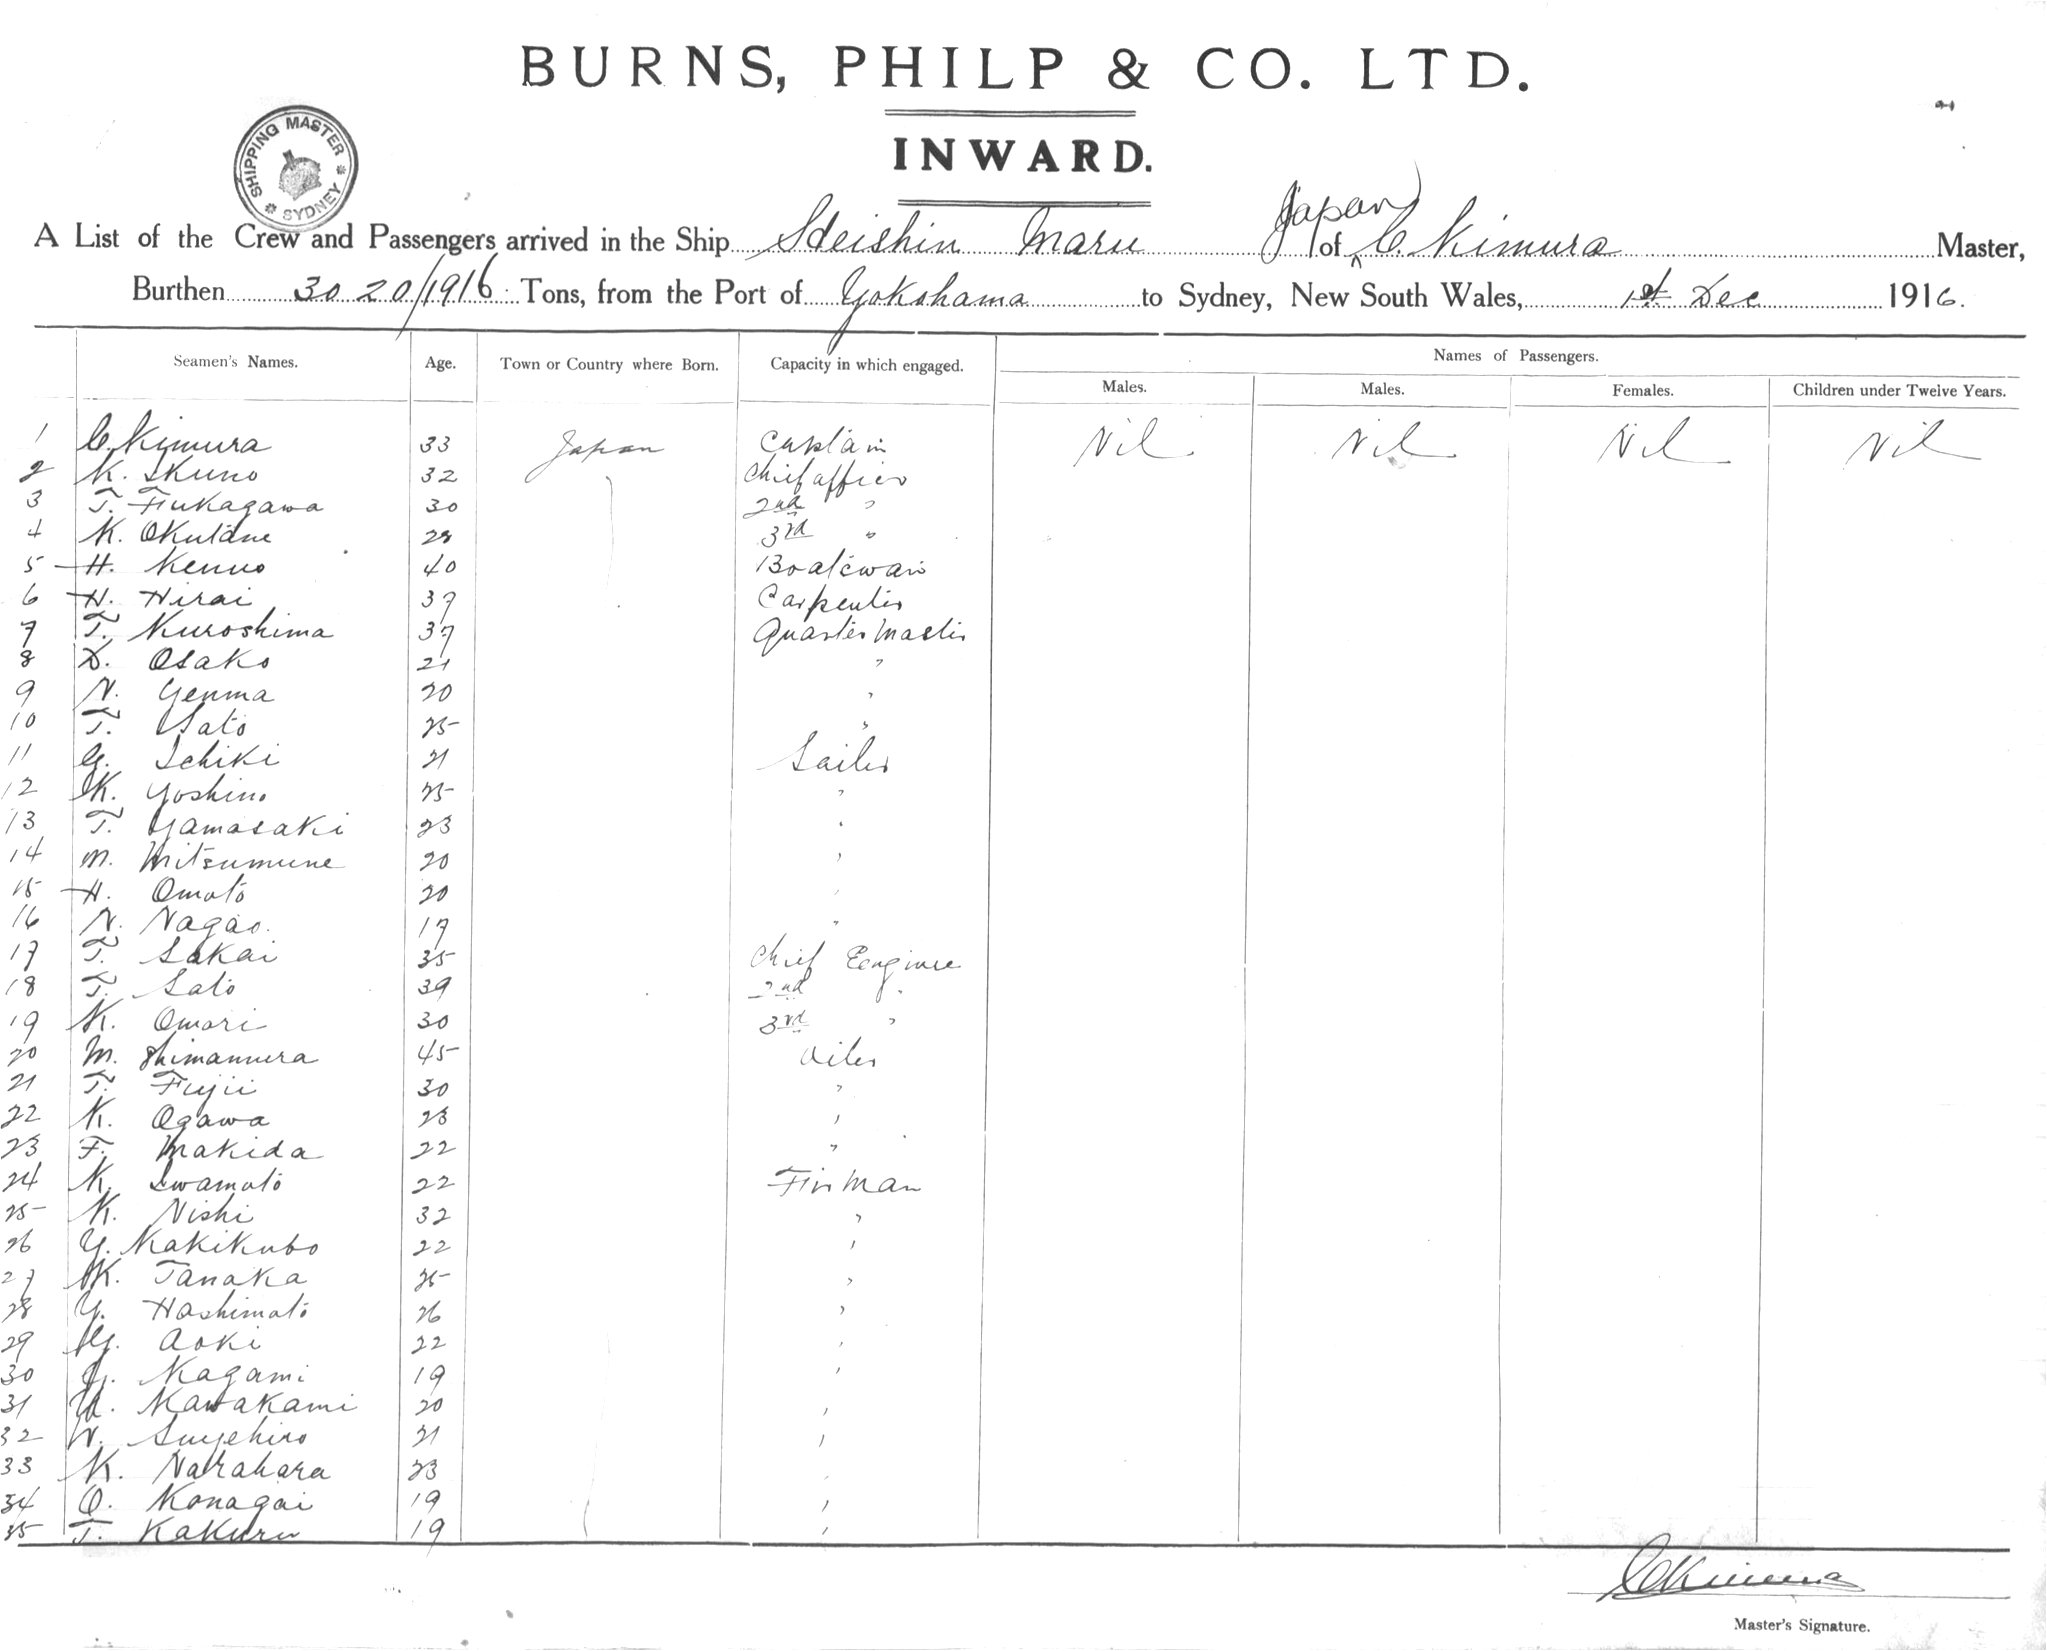 BURNS, PHILP & CO. LTD.
INWARD.
SHIPPING MASTER
SYDNEY
Japan
A List of the Crew and Passengers arrived in the Ship Maru of C. Kimura Master,
Burthen 3020/1916 Tons, from the Port of Yokohama to Sydney, New South Wales, 1st Dec 1916.
Seamen's Names. Age. Town or Country where Born. Capacity in which engaged. Names of Passengers.
Males. Males. Females. Children under Twelve Years.
1 C. Kimura 33 Japan Captain Nil Nil Nil Nil
2 K. Ikuno 32 Chief officer
3 T. Fukagawa 30 2nd "
4 K. Okutane 28 3rd "
5 H. Kenno 40 Boatswain
6 H. Hirai 37 Carpenter
7 T. Kuroshima 37 Quarter Master
8 D. Osako 21 "
9 N. Yenma 20 "
10 T. Sato 25 "
11 G. Ichiki 21 Sailer
12 K. Yoshino 25 "
13 T. Yamasaki 23 "
14 M. Mitsumune 20 "
15 H. Omoto 20 "
16 N. Nagao. 17 "
17 T. Sakai 35 Chief Eengineer
18 T. Sato 39 2nd "
19 K. Omori 30 3rd "
20 M. Shimamura 45 Oiler
21 T. Fujii 30 "
22 K. Ogawa 23 "
23 F. Makida 22 "
24 K. Iwamoto 22 Firman
25 K. Nishi 32 "
26 Y. Kakikubo 22 "
27 K. Tanaka 25 "
28 Y. Hashimoto 26 "
29 Aoki 22 "
30 Kagami 19 "
31 Kawakami 20 "
32 Suyehiro 21 "
33 K. Narahara 23 "
34 O. Konagai 19 "
35 T. Kakuru 19 "
C Kimura
Master's Signature.